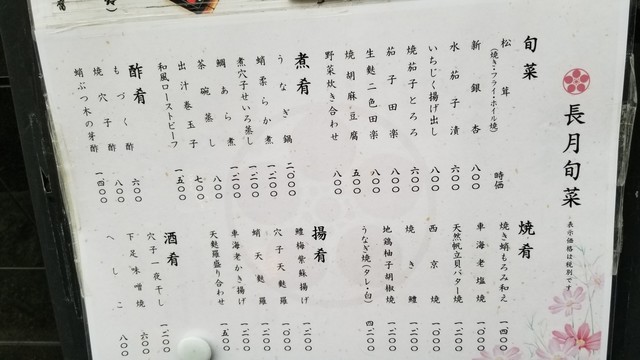 長月旬菜
表示価格は税別です。
旬菜
松茸 (焼き・フライ・ホイル焼) 時価
新銀杏 八〇〇
水茄子漬 六〇〇
いちじく揚げ出し 八〇〇
焼茄子とろろ 六〇〇
茄子田楽 八〇〇
生麩二色田楽 八〇〇
焼胡麻豆腐 五〇〇
野菜炊き合わせ 八〇〇
煮肴
うなぎ鍋 二〇〇〇
蛸柔らか煮 一二〇〇
煮穴子せいろ蒸し 一二〇〇
鯛あら煮 一二〇〇
茶碗蒸し 八〇〇
出汁巻玉子 七〇〇
和風ローストビーフ 一五〇〇
酢肴
もづく酢 六〇〇
焼穴子酢 八〇〇
蛸ぶつ木の芽酢 一四〇〇
焼肴
焼き蛸もろみ和え 一四〇〇
車海老塩焼 一〇〇〇
天然帆立貝バター焼 一二〇〇
西京焼 一〇〇〇
焼き鱧
地鶏柚子胡椒焼 一二〇〇
うなぎ焼(タレ・白) 四二〇〇
揚肴
鱧梅紫蘇揚げ 一二〇〇
穴子天麩羅 一〇〇〇
蛸天麩羅 一二〇〇
車海老かき揚げ 一二〇〇
天麩羅盛り合わせ 一五〇〇
酒肴
穴子一夜干し 一二〇〇
下足味噌焼 六〇〇
へしこ 八〇〇